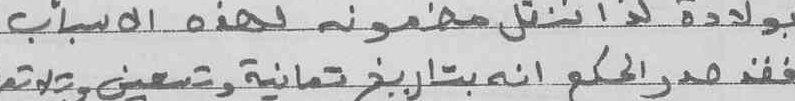 بولادة لذا ننقل مضمونه لهذه الاسباب
فقد صدر الحكم انه بتاريخ ثمانية وتسعين وثلاثم